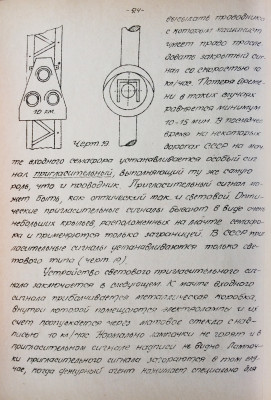 -84-
высылать проводника
с которым машинист
имеет право просле
довать закрытый сиг
нал со скоростью 10
км/час. Потеря време
ни в таких случаях
равняется минимум
10-15 мин. В последнее
время на некоторых
10 км
Черт. 19
дорогах СССР на мач
те входного семафора устанавливается особый сиг
нал пригласительный, выполняющий ту же самую
роль, что и проводник. Пригласительный сигнал мо
жет быть, как оптический так и световой. Оптичес
ческие пригласительные сигналы бывают в виде
небольших крыльев расположенных на мачте семафо
ра и применяются только заграницей. В СССР при
гласительные сигналы устанавливаются только све
тового типа (черт. 19).
Устройство светового пригласительного сиг
нала заключается в следующем. К мачте входного
сигнала прибалчивается металлическая коробка,
внутри которой помещаются электролампы и их
свет пропускается через матовое стекло с над
писью 10 км/час. Нормально лампочки не горят и
пригласительном сигнале надписи не видно. Лампоч
ки пригласительного сигнала загораются в том слу
чае, когда дежурный агент нажимает специально для